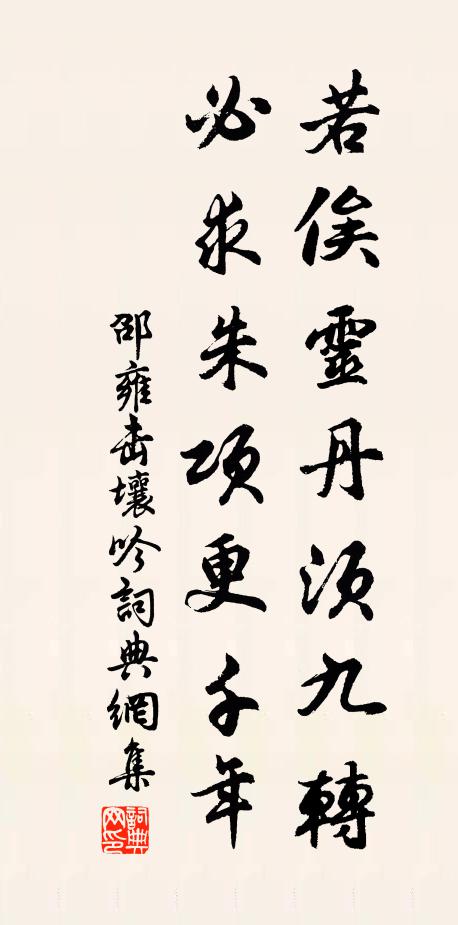 若俟靈丹須九轉
必求朱項更千年
邵雍擊壤吟詞典網集
詞典網印